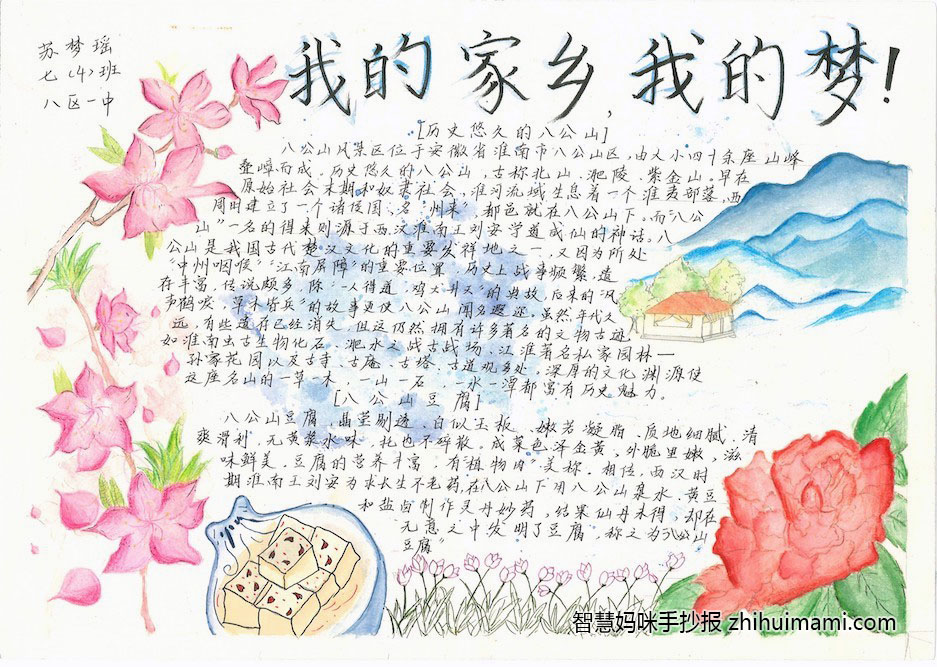 苏梦瑶
七(4)班
八区一中
我的家乡,我的梦!
[历史悠久的八公山]
八公山风景区位于安徽省淮南市八公山区,由大小四十余座山峰
叠嶂而成。历史悠久的八公山,古称北山、淝陵、紫金山。早在
原始社会末期和奴隶社会,淮河流域生息着一个淮夷部落,西
周时建立了一个诸侯国,名"州来",都邑就在八公山下。而"八公
山"一名的得来则源于西汉淮南王刘安学道成仙的神话。八
公山是我国古代楚汉文化的重要发祥地之一,又因为所处
"中州咽侯""江南屏障"的重要位置,历史上战事频繁,遗
存丰富,传说颇多,除"一人得道,鸡犬升天"的典故,后来的"风
声鹤唳,草木皆兵"的故事更使八公山闻名遐迩。虽然年代久
远,有些遗存已经消失,但这仍然拥有许多著名的文物古迹,
如淮南虫古生物化石、淝水之战古战场、江淮著名私家园林一
孙家花园以及古寺、古庵、古塔、古道观多处,深厚的文化渊源使
这座名山的一草一木,一山一石,一水一潭都富有历史魅力。
[八公山豆腐]
八公山豆腐,晶莹剔透,白似玉板,嫩若凝脂,质地细腻,清
爽滑利,无黄浆水味,托也不碎散。成菜色泽金黄,外脆里嫩,滋
味鲜美。豆腐的营养丰富,有"植物肉"美称。相传,西汉时
期淮南王刘安为求长生不老药,在八公山下用八公山泉水、黄豆
和盐卤制作灵丹妙药,结果仙丹未得,却在
无意之中发明了豆腐,称之为"八公山
豆腐"
智慧妈咪手抄报 zhihuimami.com